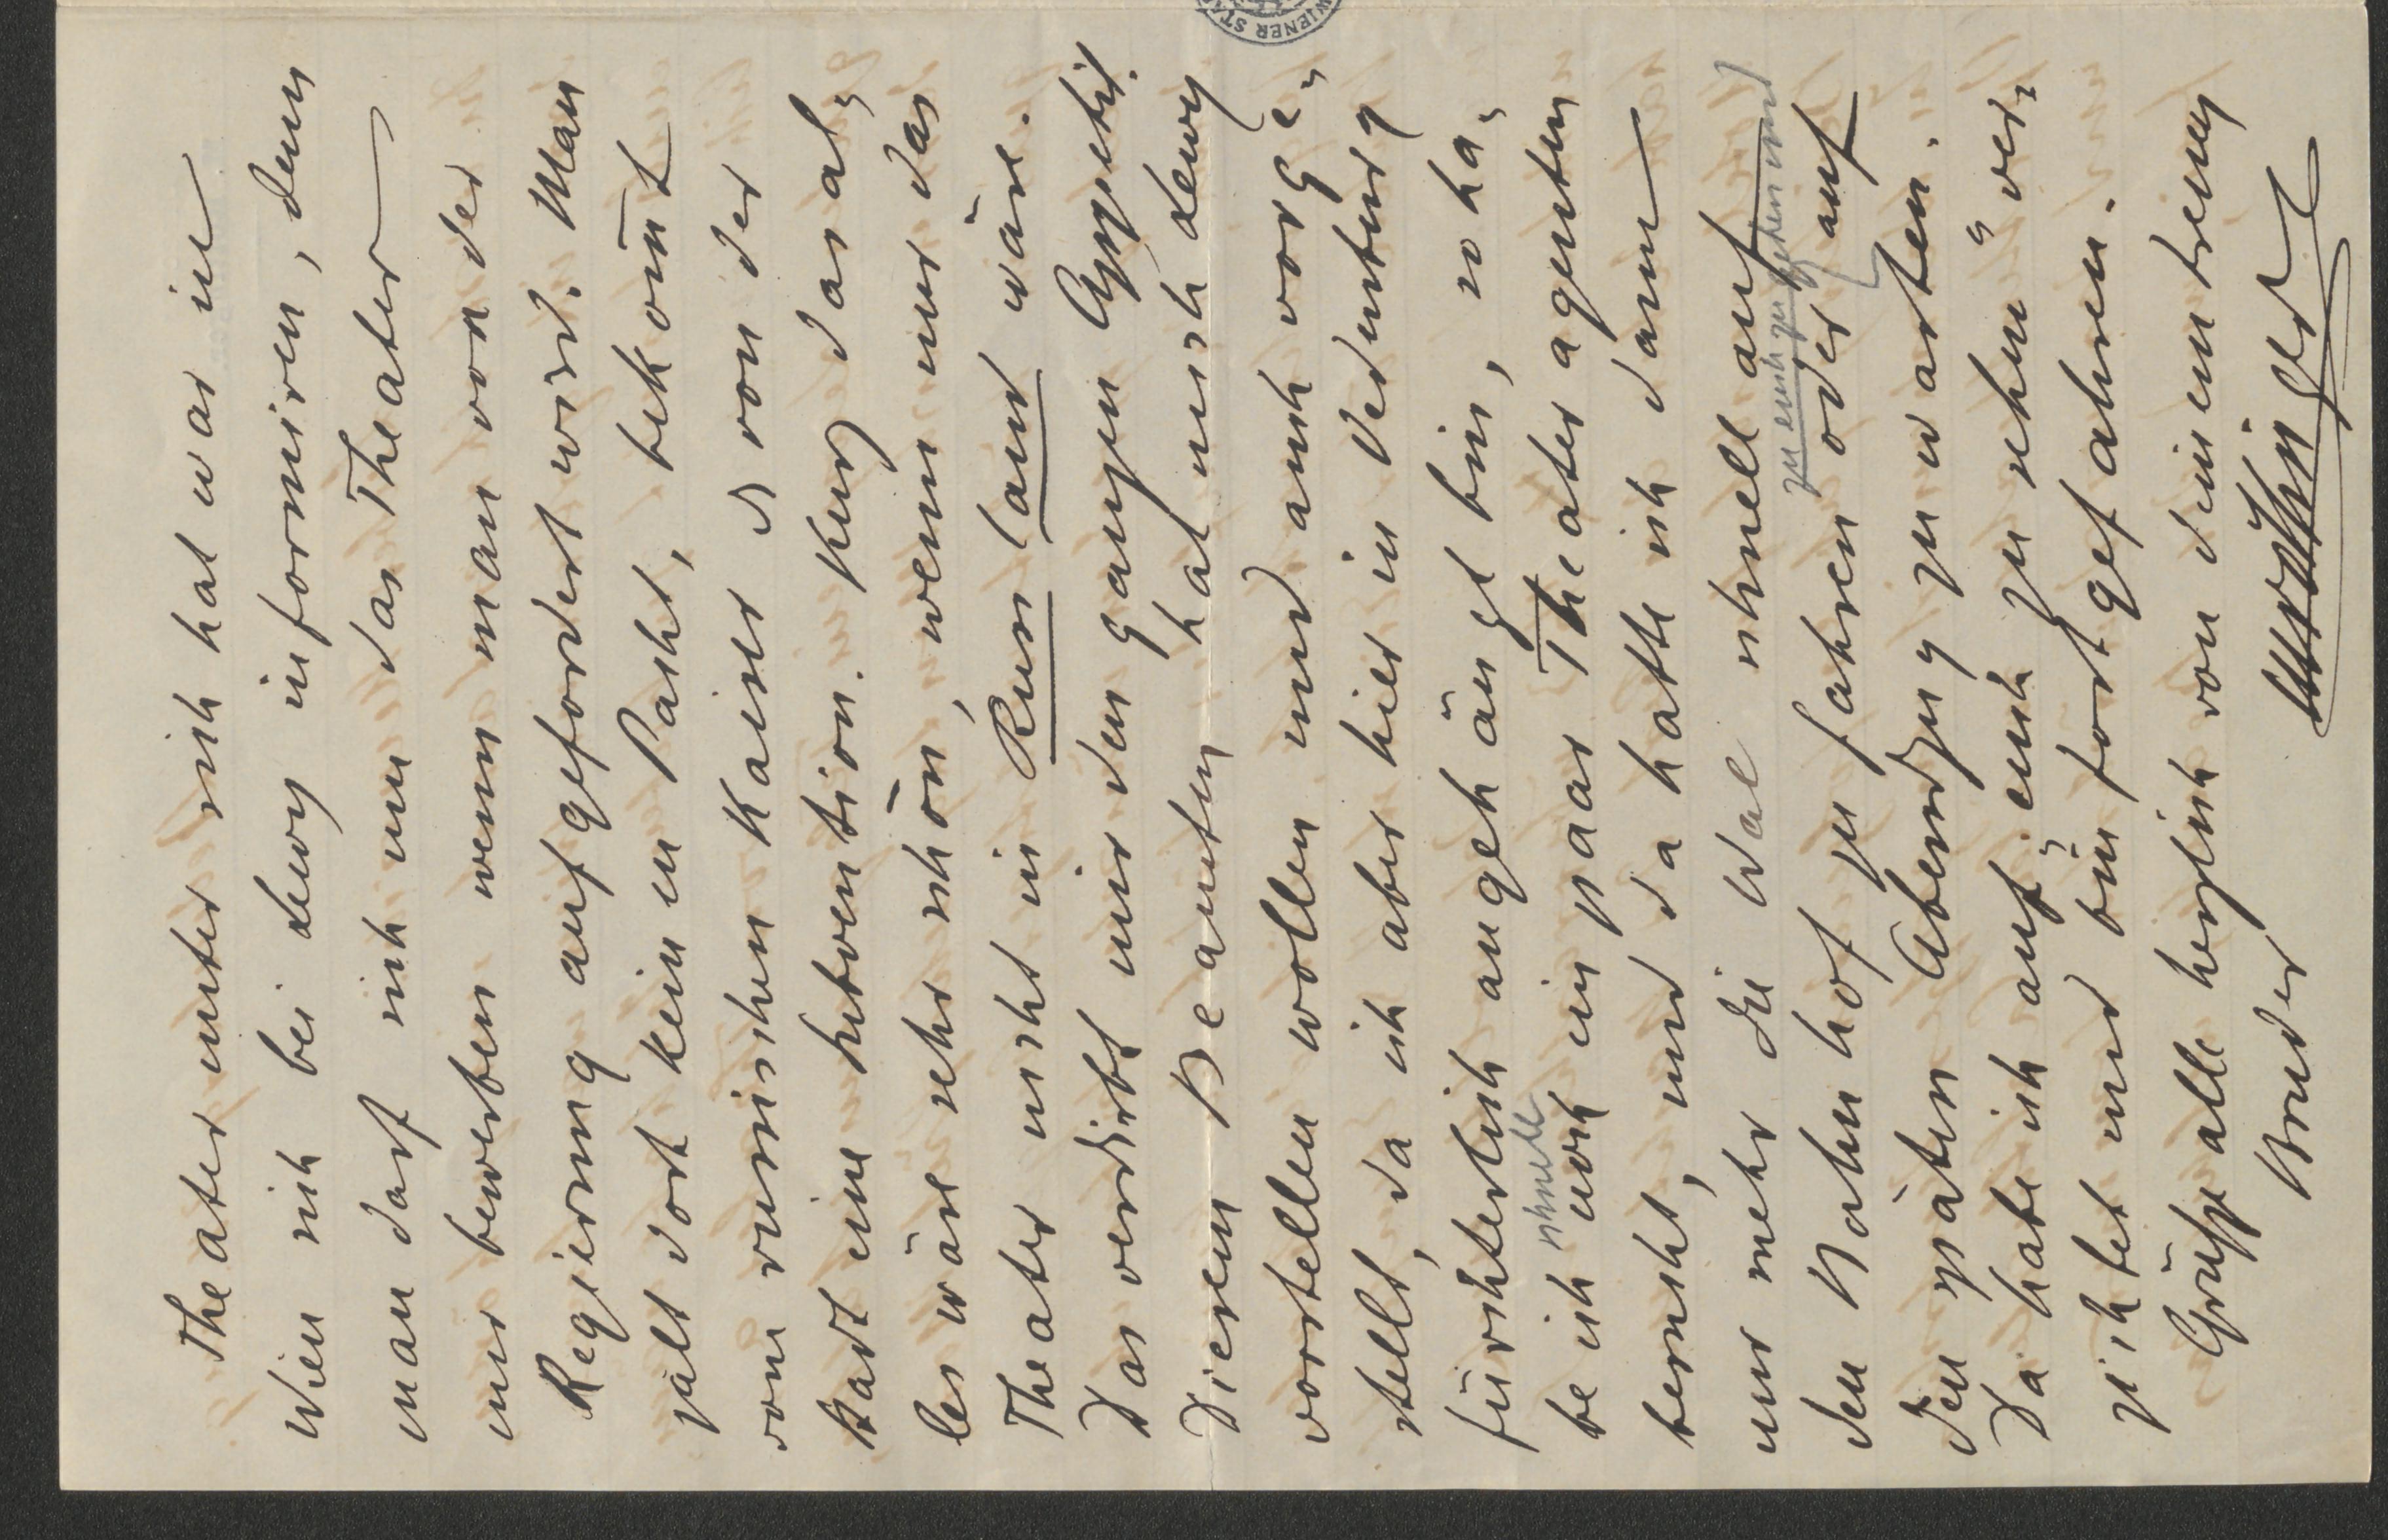 Theater unter sich hat war in
Wien sich bei Lewy informiren, denn
man darf sich um das Theater
nur bewerben wenn man von der
Regierung aufgefordert wird. Man
zalt dort keinen Pacht, bekom̄t
vom russischen Kaiser u von der
Stadt eine Subvention. Kurz das al„
les wäre sehr schön, wenn nur das
Theater nicht in Russland wäre.
Das verdirbt mir den ganzen Appetit.
Diesen Beamten hat mich Lewy
vorstellen wollen und auch vorge„
stellt, da ich aber hier in Verbindung
fürchterlich angehängt bin, so ha„
be ich noch ein paar Theateragenten
schnelle
besucht, und da hatte ich dann
nur mehr die Wal schnell auf
zu euch zu gehen und
den Bahnhof zu fahren oder auf
den späten Abendzug zu warten.
Da habe ich auf „euch zu sehen“ ver„
zichtet und bin fortgefahren.
Grüße alle herzlich von deinem treuen
Bruder